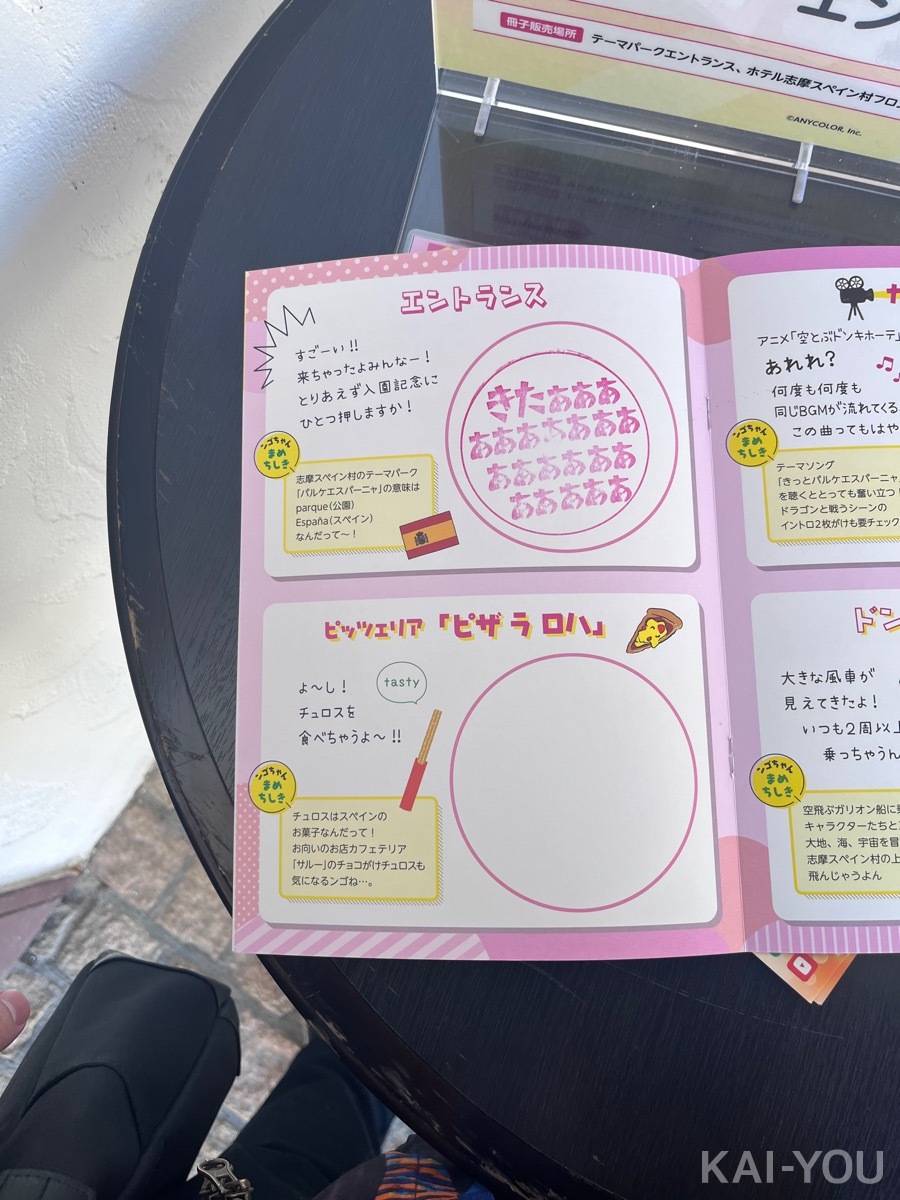 エン
冊子販売場所
テーマパークエントランス、ホテル志摩スペイン村フロ
©ANYCOLOR, Inc.
エントランス
すごーい!!
来ちゃったよみんなー!
とりあえず入園記念に
ひとつ押しますか!
きたあああ
あああああああ
ああああああ
あああああ
ンゴちゃん
まめ
ちしき
志摩スペイン村のテーマパーク
「パルケエスパーニャ」の意味は
parque(公園)
España(スペイン)
なんだって〜!
ピッツェリア「ピザ ラ ロハ」
よ〜し!
チュロスを
食べちゃうよ〜!!
tasty
ンゴちゃん
まめ
ちしき
チュロスはスペインの
お菓子なんだって!
お向いのお店カフェテリア
「サルー」のチョコがけチュロスも
気になるンゴね…。
アニメ「空とぶドンキホーテ」
あれれ?
何度も何度も
同じBGMが流れてくる
この曲ってもはや
ンゴちゃん
まめ
ちしき
テーマソング
「きっとパルケエスパーニャ」
を聴くととっても奮い立つ!
ドラゴンと戦うシーンの
イントロ2枚がけも要チェック
ドン
大きな風車が
見えてきたよ!
いつも2周以上
乗っちゃうん
ンゴちゃん
まめ
ちしき
空飛ぶガリオン船に乗
キャラクターたちと
大地、海、宇宙を冒
志摩スペイン村の上
飛んじゃうよん
KAI-YOU